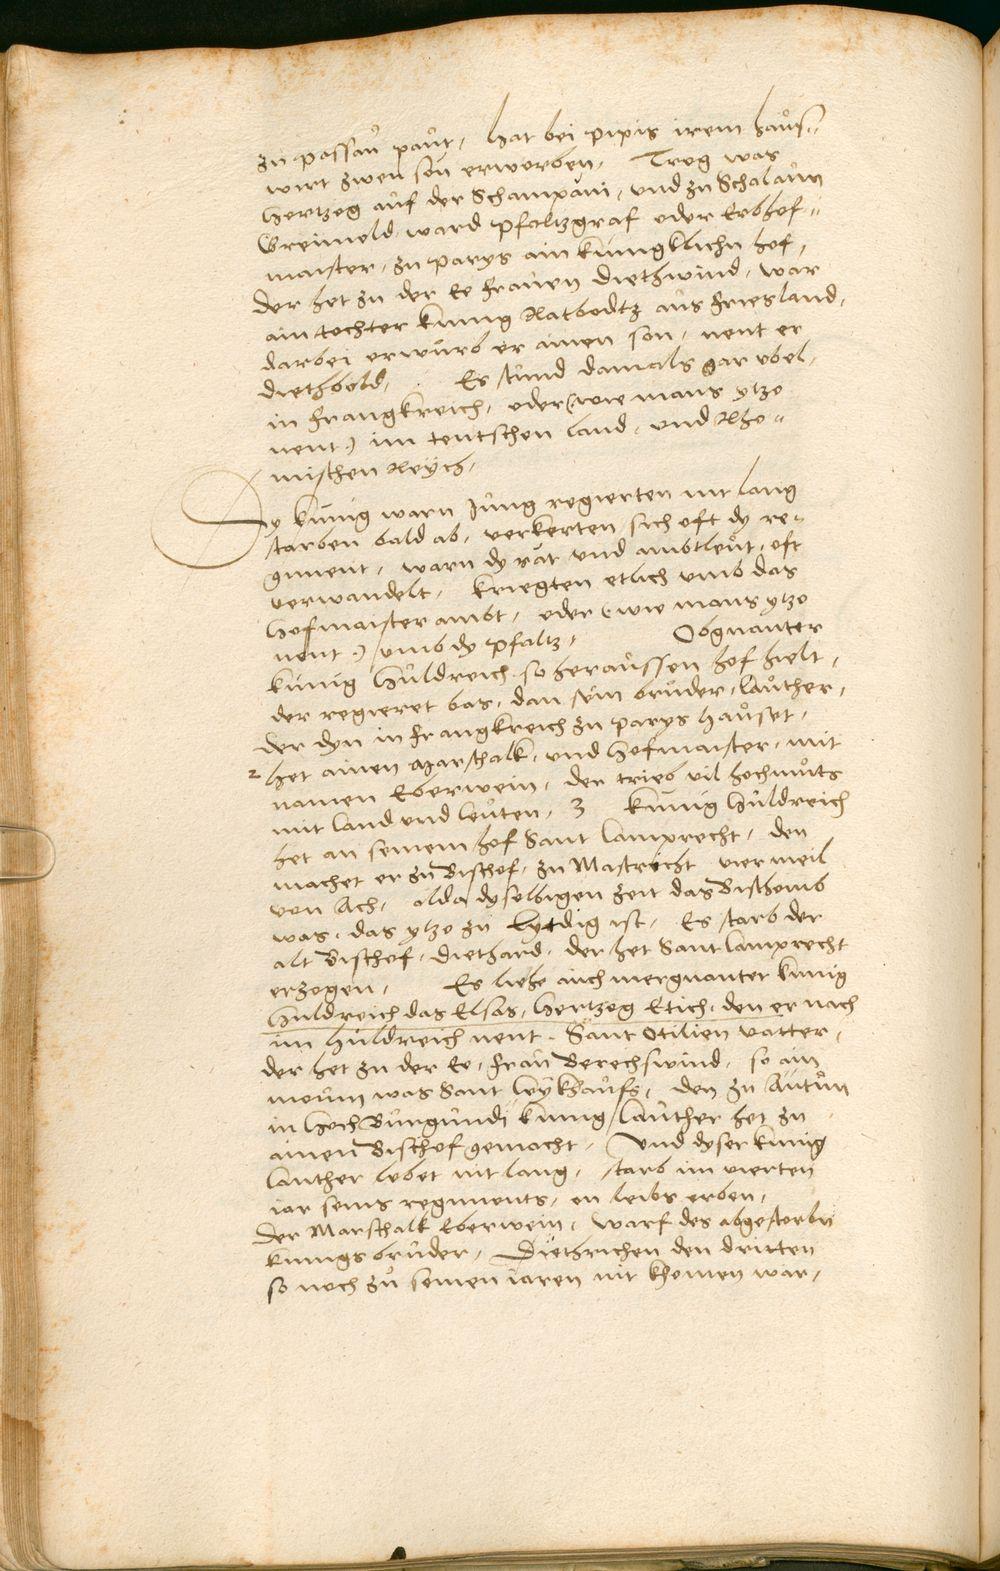 zu passaů paůt, hat bei pipis irem haůs„
wirt zwen sön erworben, Trog was
Hertzog aůf der Schampani, und zu Schalaůn
Greimold ward Pfaltzgraf oder Erbhof„
maister, zu parys am kůnigklichn hof,
der het zu der Ee fraůen Diethwind, war
ain tochter kůnig Ratbodtz aůs friesland,
darbei erwůrb er ainen son, nent er
diethbold, Es stůnd damals gar ubel,
in frangkreich, oder (wie mans ytzo
nent) im teutschen land, und Rho„
mischen Reych,
Dy kůnig warn Jůng regierten nit lang
starben bald ab, verkerten sich oft dy re„
giment, warn dy rät und ambtleůt, oft
verwandelt, kriegten etlich umb das
Hofmaister ambt, oder (wie mans ytzo
nent) umb dy pfaltz, Obgnanter
kůnig Hůldreich so heraůssen hof hielt,
der regieret bas, dan sein brůder, laůther,
der dyn in frangkreich zu parys haůset,
2 het ainen Marschalk, und Hofmaister, mit
namen Eberwein, der trieb vil hochmůts
mit land und leůten, 3 kůnig Hůldreich
het an seinem hof Sant lamprecht, den
machet er zu Bischof, zu Mastrecht vier meil
von Ach, alda dyselbigen zeit das Bisthomb
was, das ytzo zů Lyttig ist, Es starb der
alt Bischof, Diethard, der het Sant Lamprecht
erzogen, Es liehe aůch mergnanter kůnig
Hůldreich das Elsas, Hertzog Etich, den er nach
im Hůldreich nent, Sant Otilien vatter,
der het zu der Ee, fraů Berechswind, so ain
moům was Sant leykhaůfs, den zu Aůtůn
in Hoch Bůrgůndi kůnig laůther het zu
ainen Bischof gemacht, Und dyser kůnig
laůther lebet nit lang, starb im vierten
jar seins regiments, on leibs erben,
Der Marschalk Eberwein, warf des abgestorbn
kůnigs brůder, Diethrichen den dritten
so noch zů seinen jaren nit khomen war,